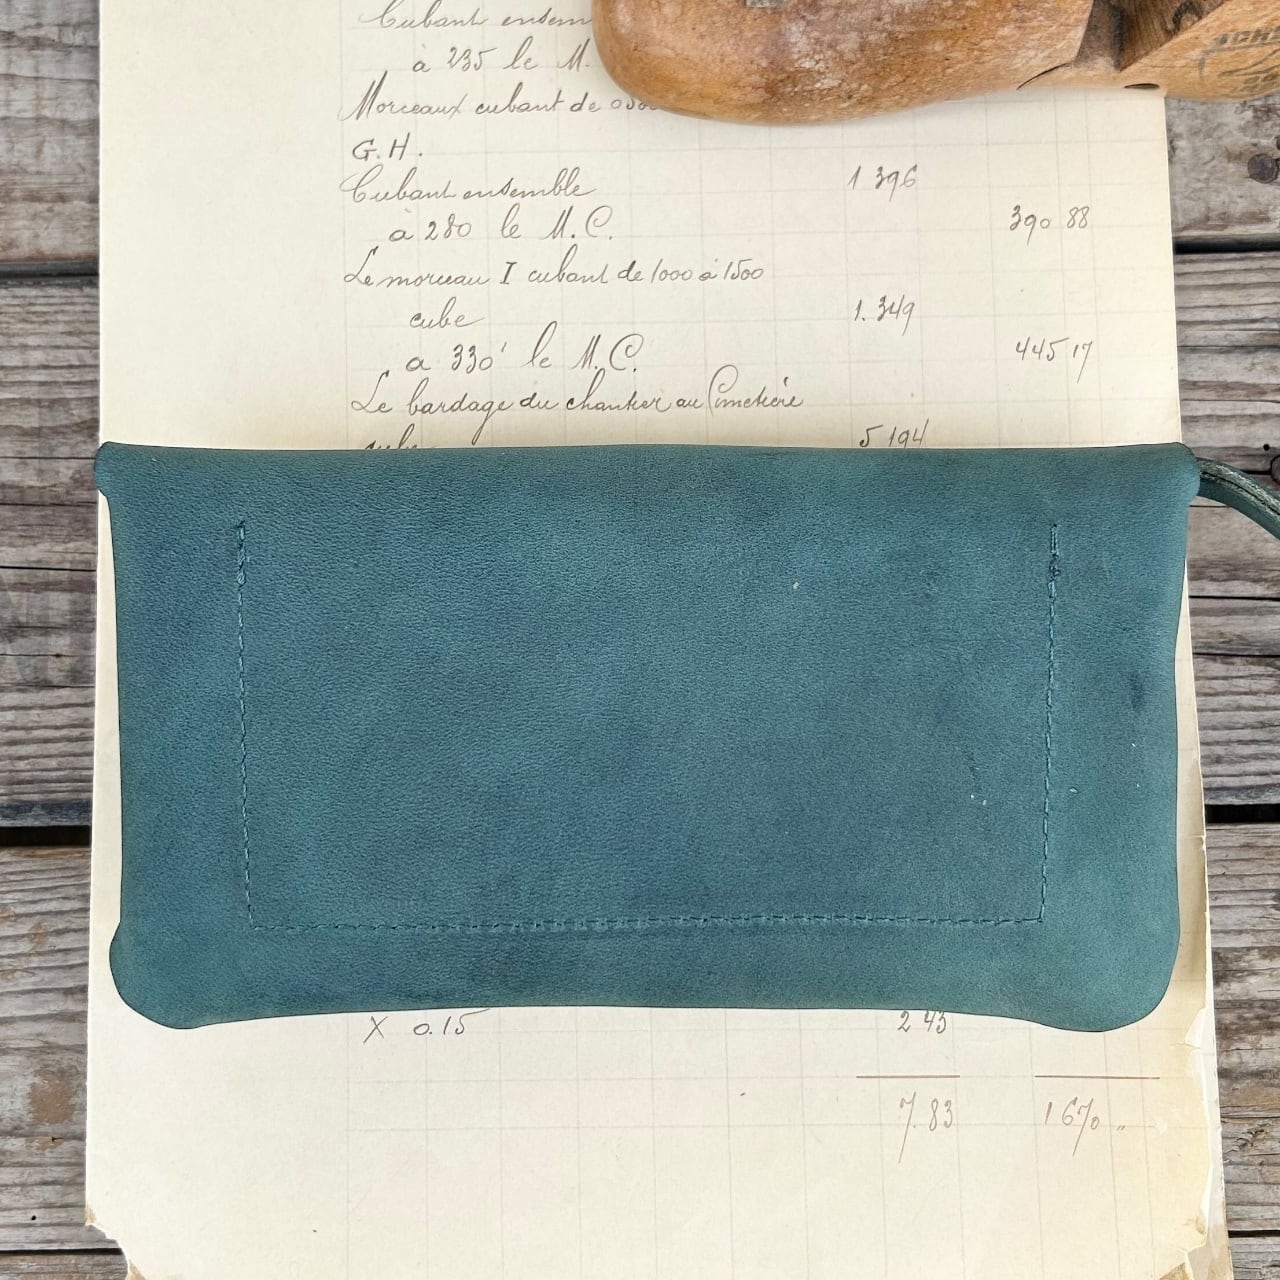 Cubant ensem
à 235 le M.
Morceaux cubant de
G.H.
Cubant ensemble 1 396
à 280 le M.C. 390 88
Le morceau I cubant de 1000 à 1500
cube 1.349
a 330' le M.C. 445 17
Le bardage du chantier au Cimetière
cube 5 194
X 0.15 2 43
7.83 1670 "